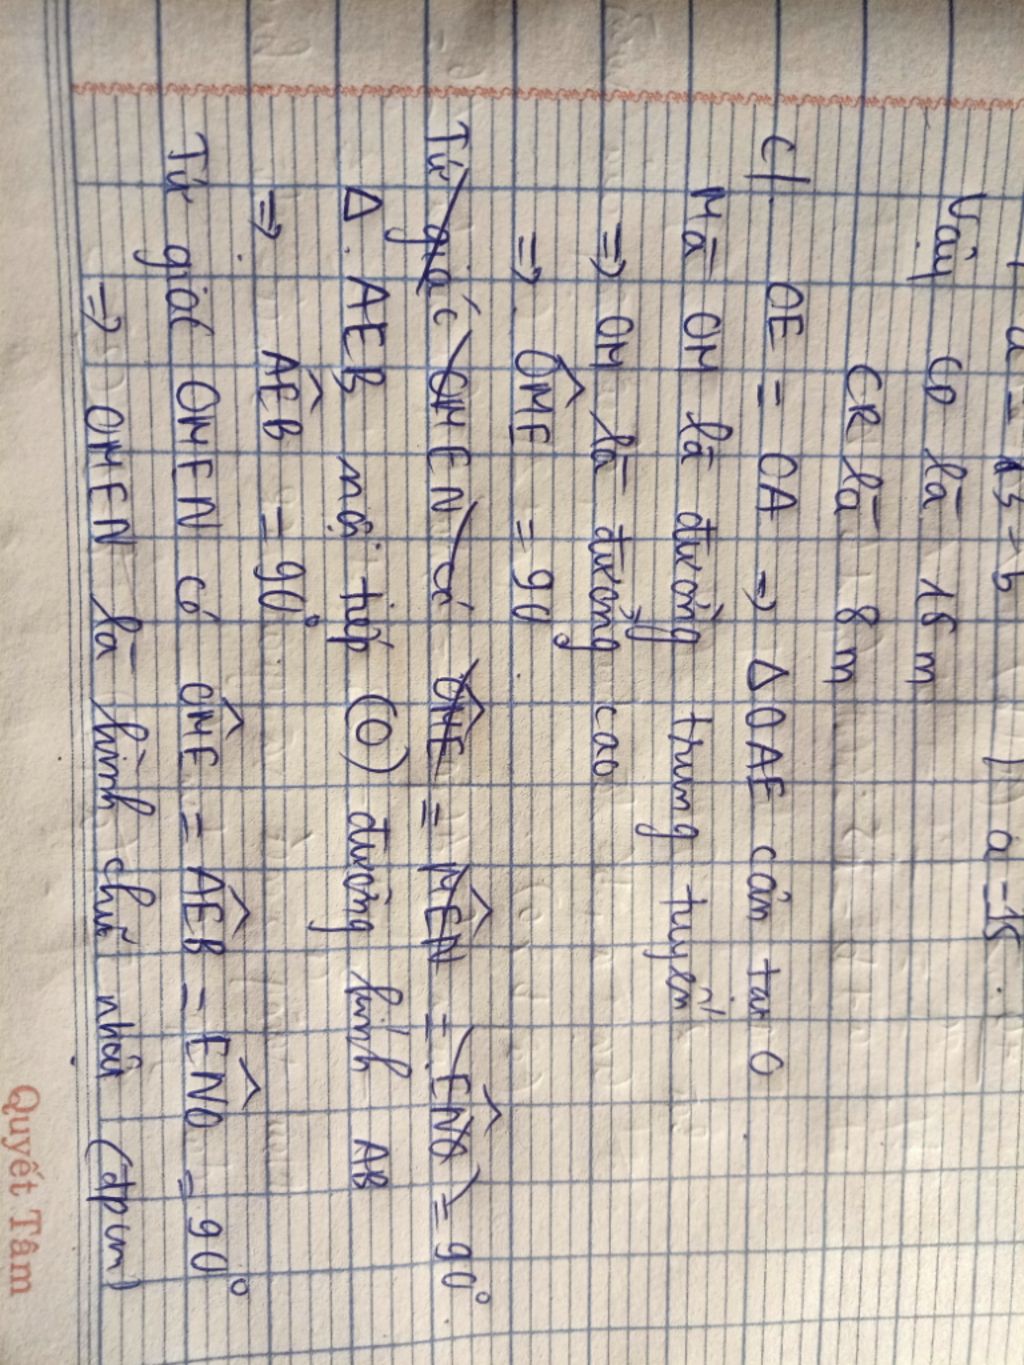 a = 15 = b | a = 15.
Vậy CD là 18 m
CR là 8 m
c/. OE = OA => Δ OAE cân tại O
Mà OM là đường trung tuyến
=> OM là đường cao
=> OME = 90
Tứ giác OMEN có OME = MEN = ENO = 90°
Δ. AEB nội tiếp (O) đường kính AB
=> AEB = 90°
Tứ giác OMEN có OME = AEB = ENO = 90°
=> OMEN là hình chữ nhật (đpcm)
Quyết Tâm